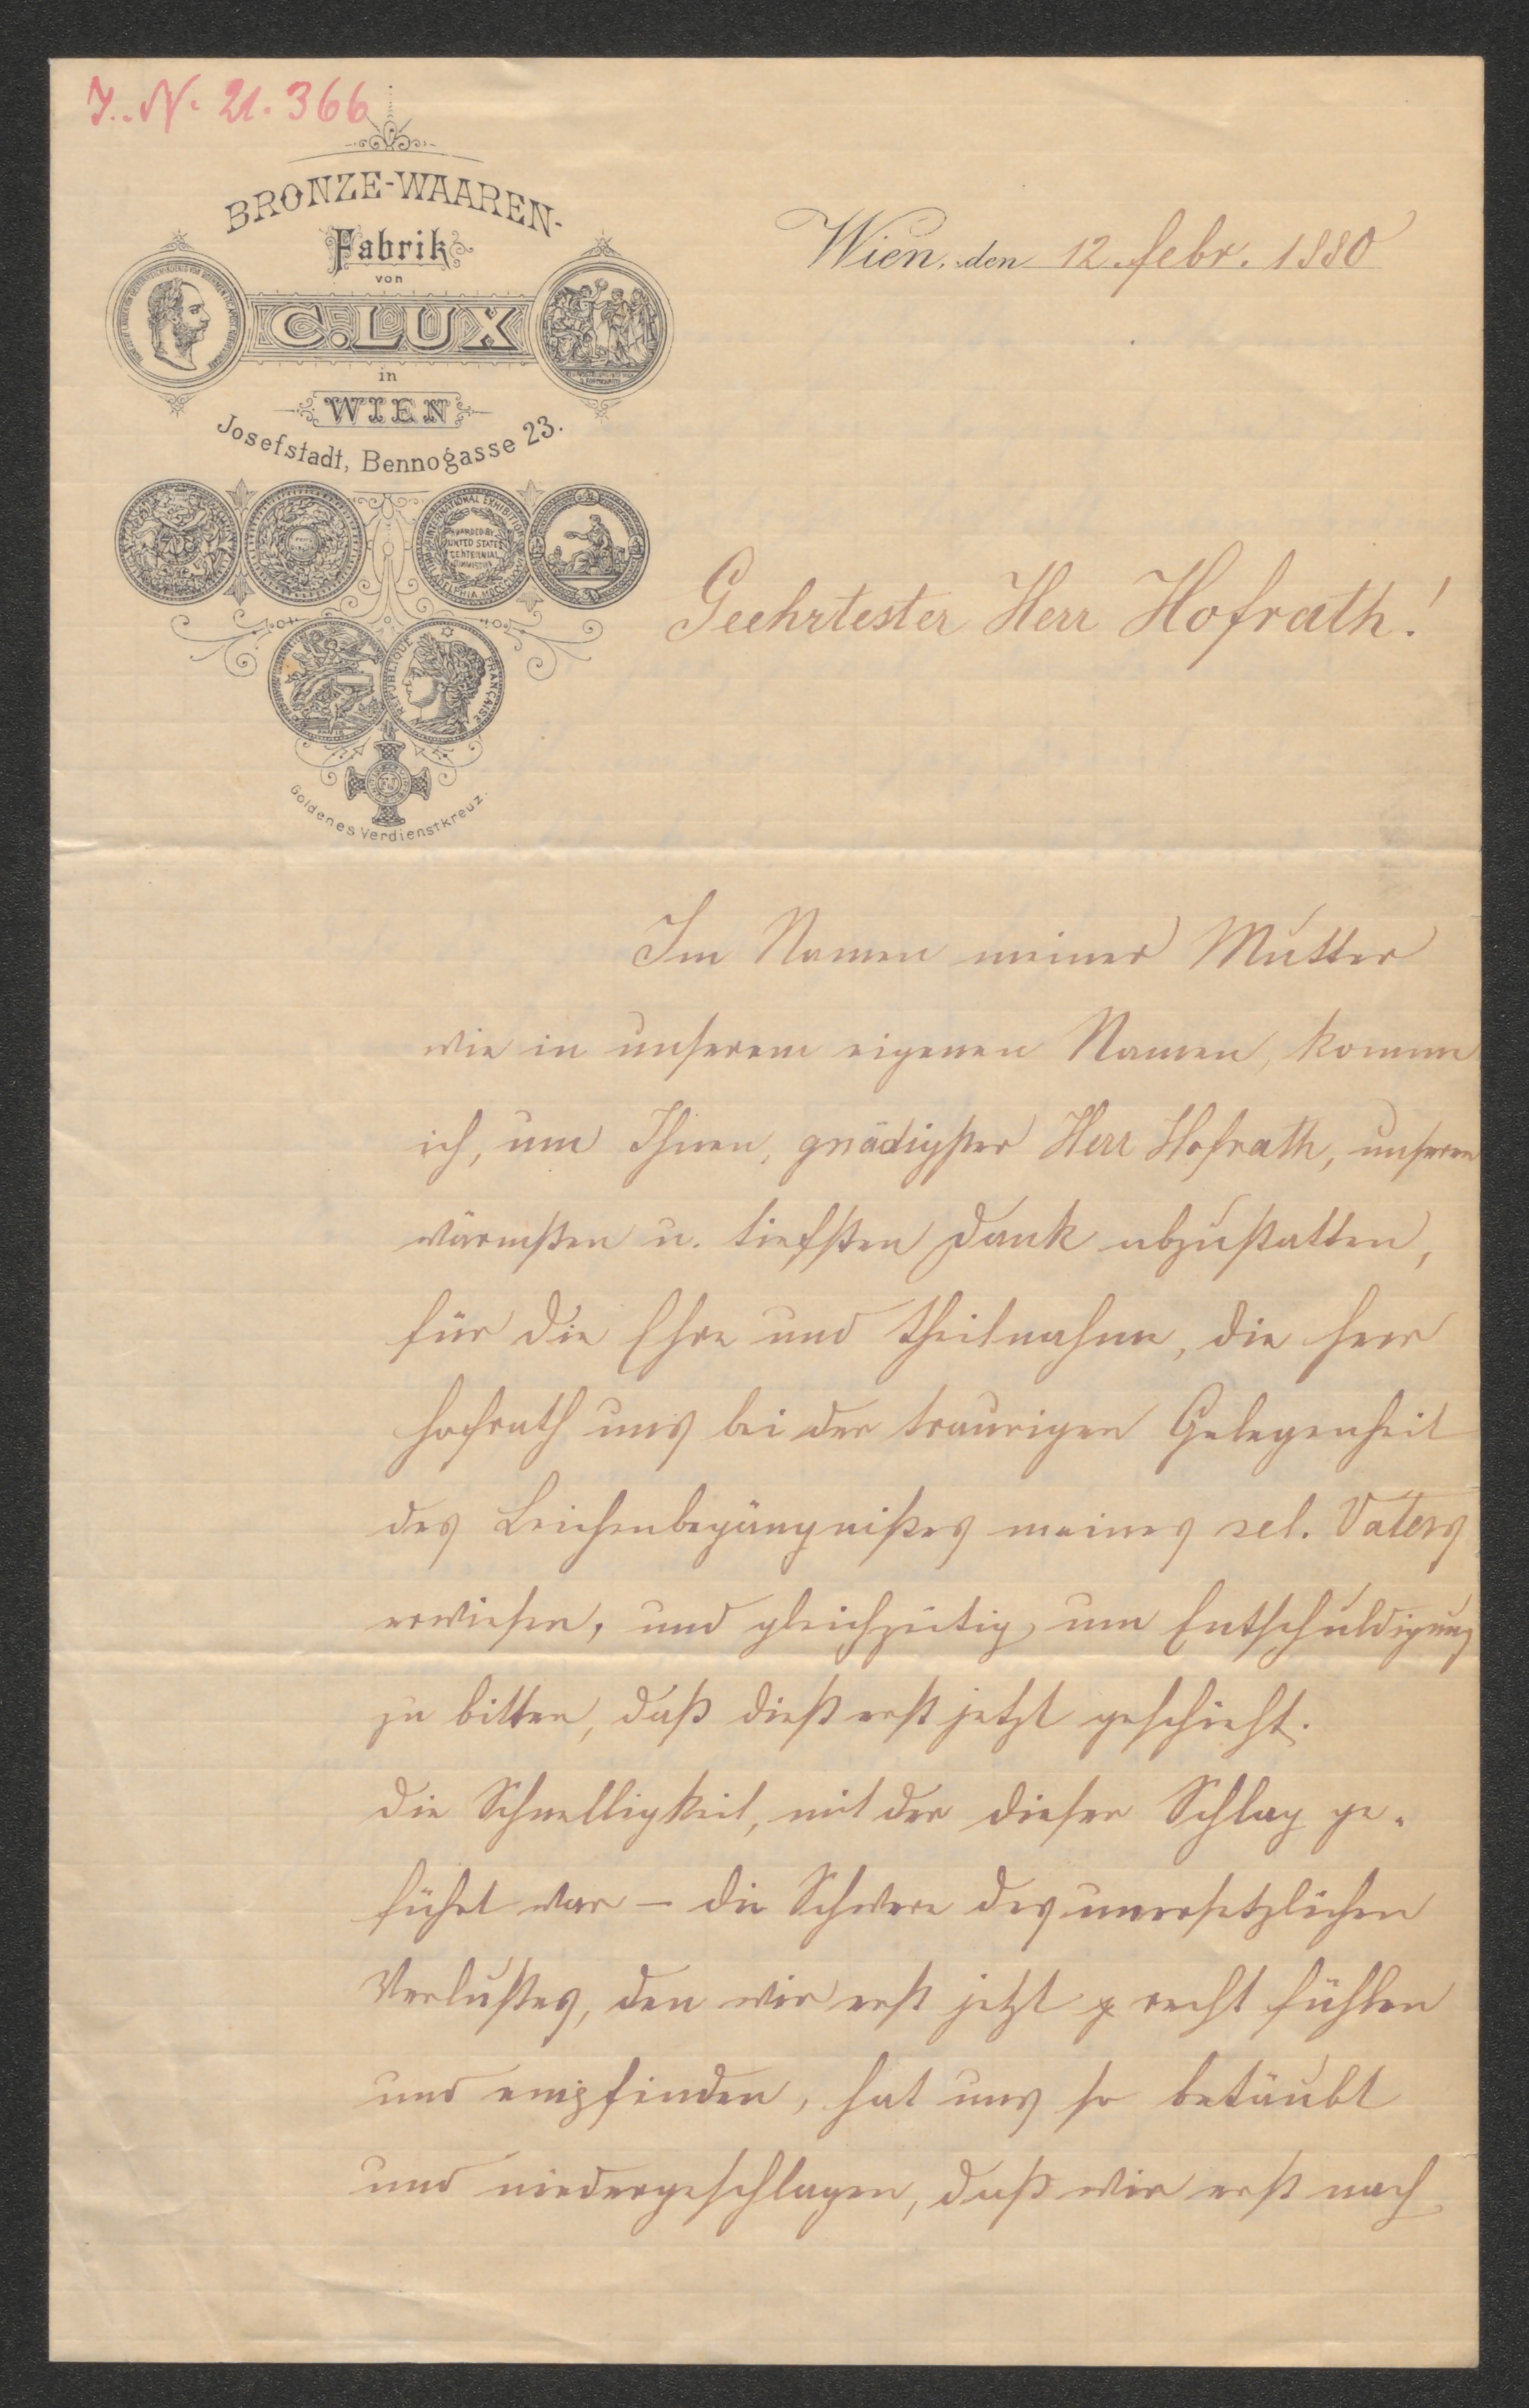 I. N. 21.366
BRONZE-WAAREN-
Fabrik
von
C. LUX
in
WIEN
Josefstadt, Bennogasse 23.
INTERNATIONAL EXHIBITION
AWARDED BY
UNITED STATES
CENTENNIAL
COMMISSION
REPUBLIQUE FRANÇAISE
Goldenes Verdienstkreuz.
Wien, den 12. Febr. 1880
Geehrtester Herr Hofrath!
Im Namen meiner Mutter
wie in unserem eigenen Namen, komme
ich, um Ihnen, gnädigster Herr Hofrath, unseren
wärmsten u. tiefsten Dank abzustatten,
für die Ehre und Theilnahme, die Herr
Hofrath uns bei der traurigen Gelegenheit
des Leichenbegängnißes meines sel. Vaters
erwiesen, und gleichzeitig um Entschuldigung
zu bitten, daß dieß erst jetzt geschieht.
Die Schnelligkeit, mit der dieser Schlag ge-
führt war – die Schwere des unersetzlichen
Verlustes, den wir erst jetzt recht fühlen
und empfinden, hat uns so betäubt
und niedergeschlagen, daß wir erst nach